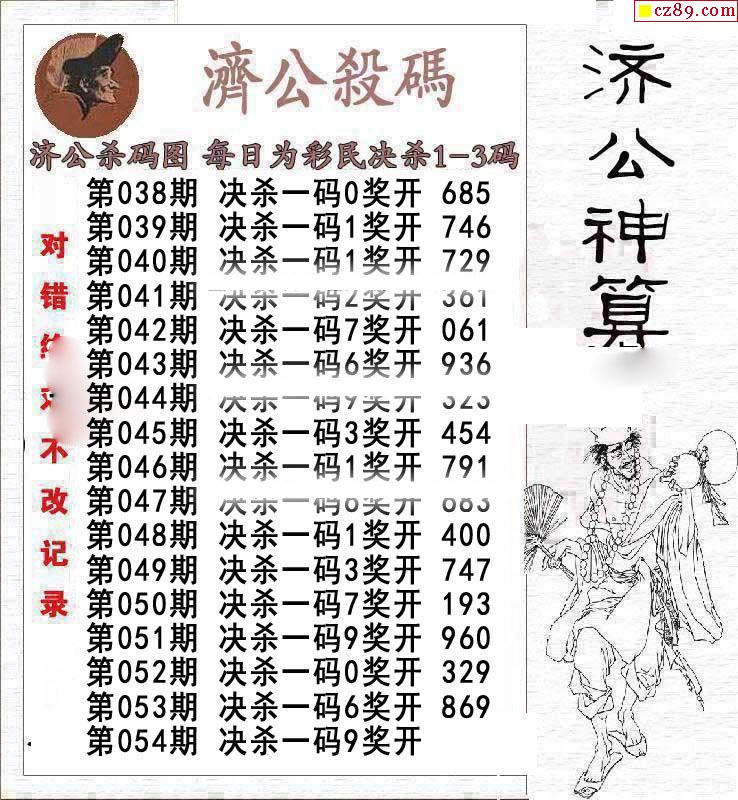 cz89.com
濟公殺碼
济公杀码图 每日为彩民决杀1-3码
第038期 决杀一码0奖开 685
第039期 决杀一码1奖开 746
第040期 决杀一码1奖开 729
第041期 决杀一码2奖开 361
第042期 决杀一码7奖开 061
第043期 决杀一码6奖开 936
第044期 决杀一码9奖开 323
第045期 决杀一码3奖开 454
第046期 决杀一码1奖开 791
第047期 决杀一码8奖开 683
第048期 决杀一码1奖开 400
第049期 决杀一码3奖开 747
第050期 决杀一码7奖开 193
第051期 决杀一码9奖开 960
第052期 决杀一码0奖开 329
第053期 决杀一码6奖开 869
第054期 决杀一码9奖开
对错不改记录
济公神算